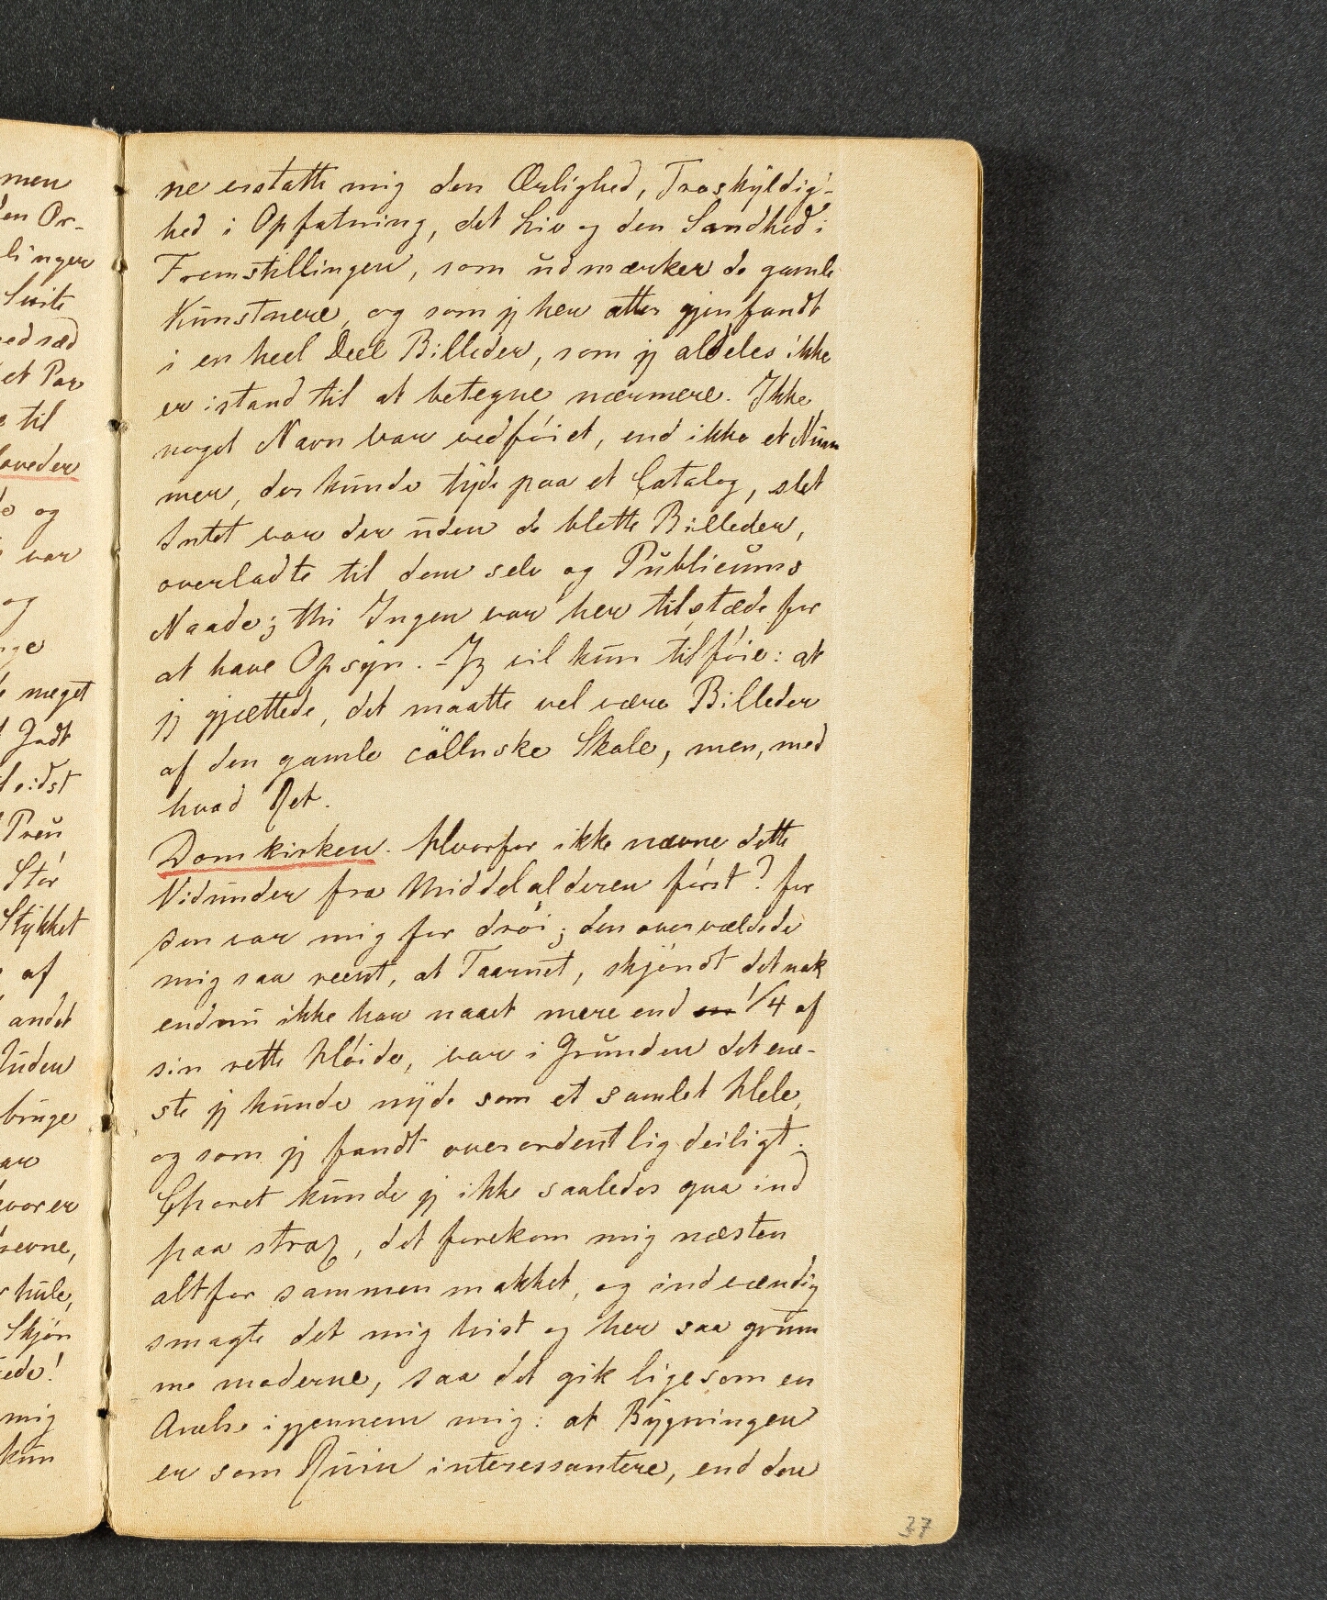 men
den Or-
linger
Suite
ved sæd
et Par
e til
hoveder
og
var
og
ge
meget
Godt
Preu
Stör
Stykket
af
andet
Juden
bruge
ar
hvor er
revne,
hule,
Skjön
ede!
mig
kun
ne erstatte mig den Ærlighed, Troskyldig-
hed i Opfatning, det Liv og den Sandhed i
Fremstillingen, som udmærker de gamle
Kunstnere, og som jg her atter gjenfandt
i en heel Deel Billeder, som jg aldeles ikke
er istand til at betegne nærmere. Ikke
noget Navn var vedföiet, end ikke et Num
mer, der kunde tyde paa et Catalog, slet
Intet var der uden de blotte Billeder,
overladte til dem selv og Publicums
Naade; thi Ingen var her tilstæde for
at have Opsyn. – Jg vil kun tilföie: at
jg gjættede, det maatte vel være Billeder
af den gamle cöllnske Skole, men, med
hvad Ret.
Domkirken. Hvorfor ikke nævne dette
Vidunder fra Middelalderen först? for
den var mig for dröi; den overvældede
mig saa reent, at Taarnet, skjöndt det nok
endnu ikke har naaet mere end en 1/4 af
sin rette Höide, var i Grunden det ene-
ste jg kunde nyde som et samlet Hele,
og som jg fandt overordentlig deiligt.
Choret kunde jg ikke saaledes gaa ind
paa strax, det forekom mig næsten
altfor sammenmakket, og indvændig
smagte det mig hist og her saa grum
me moderne, saa det gik ligesom en
Anelse igjennem mig: at Bygningen
er som Ruin interessantere, end den
37